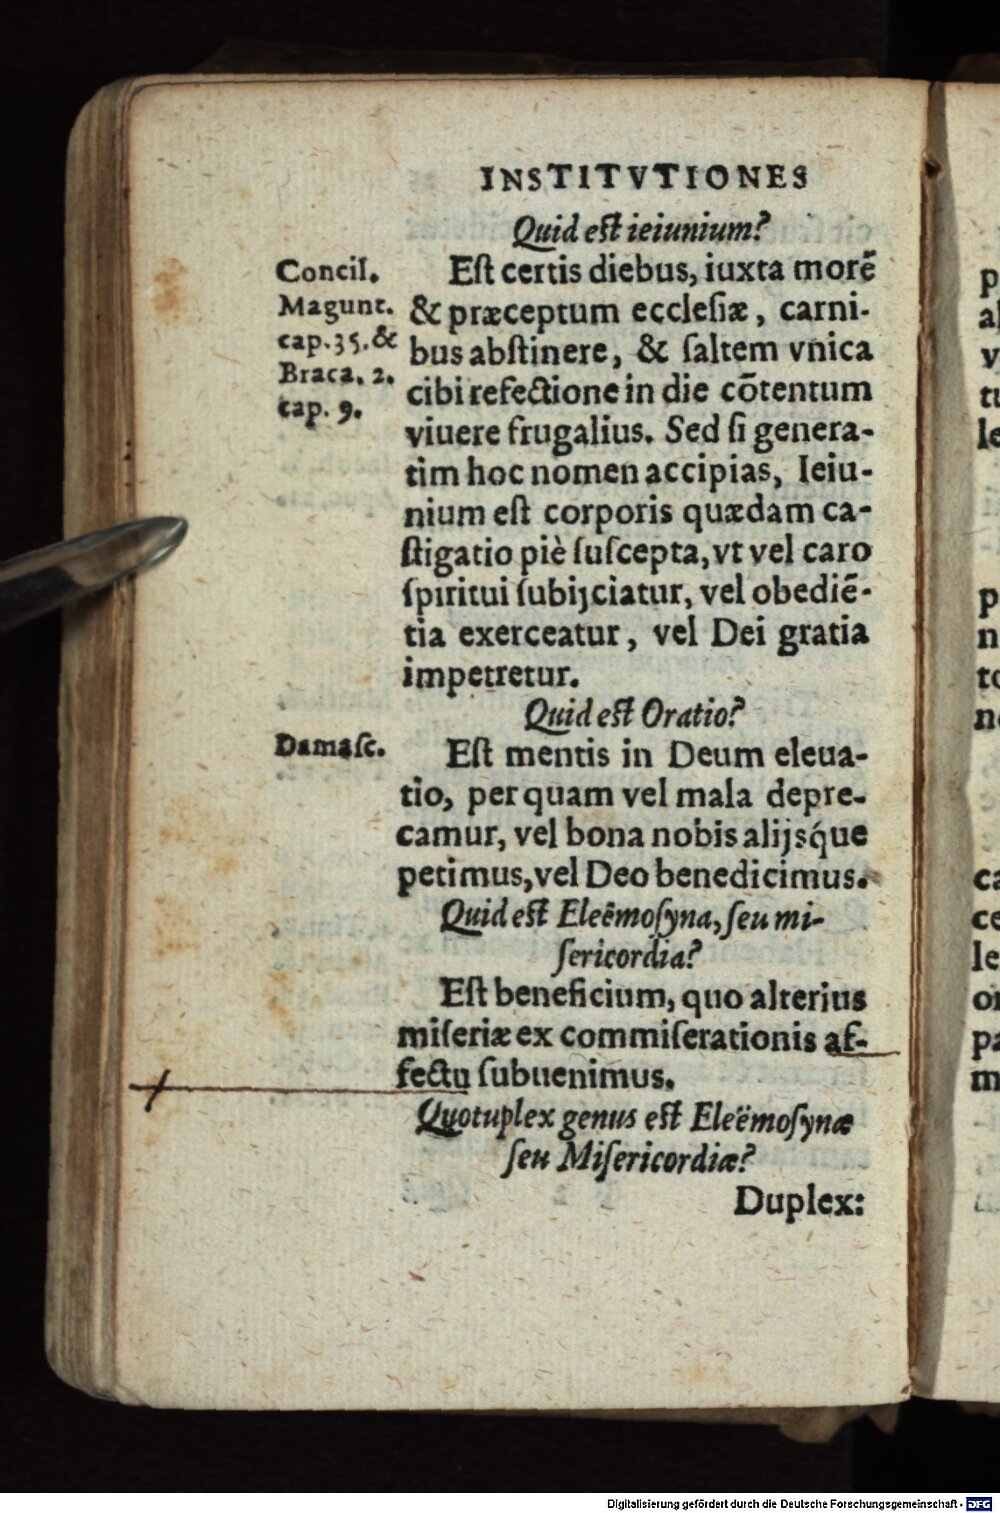 INSTITVTIONES
Quid est ieiunium?
Concil.
Magunt.
cap.35.&
Braca. 2.
cap. 9.
Eſt certis diebus, iuxta morē
& præceptum eccleſiæ, carni-
bus abſtinere, & ſaltem vnica
cibi refectione in die cōtentum
viuere frugalius. Sed ſi genera-
tim hoc nomen accipias, Ieiu-
nium eſt corporis quædam ca-
ſtigatio piè ſuſcepta, vt vel caro
ſpiritui ſubijciatur, vel obediē-
tia exerceatur, vel Dei gratia
impetretur.
Quid est Oratio?
Damaſc.
Eſt mentis in Deum eleua-
tio, per quam vel mala depre-
camur, vel bona nobis alijsq́ue
petimus, vel Deo benedicimus.
Quid est Eleëmoſyna, ſeu mi-
ſericordia?
Eſt beneficium, quo alterius
miſeriæ ex commiſerationis af-
fectu ſubuenimus.
Quotuplex genus est Eleëmoſynæ
ſeu Miſericordiæ?
Duplex:
Digitalisierung gefördert durch die Deutsche Forschungsgemeinschaft - DFG